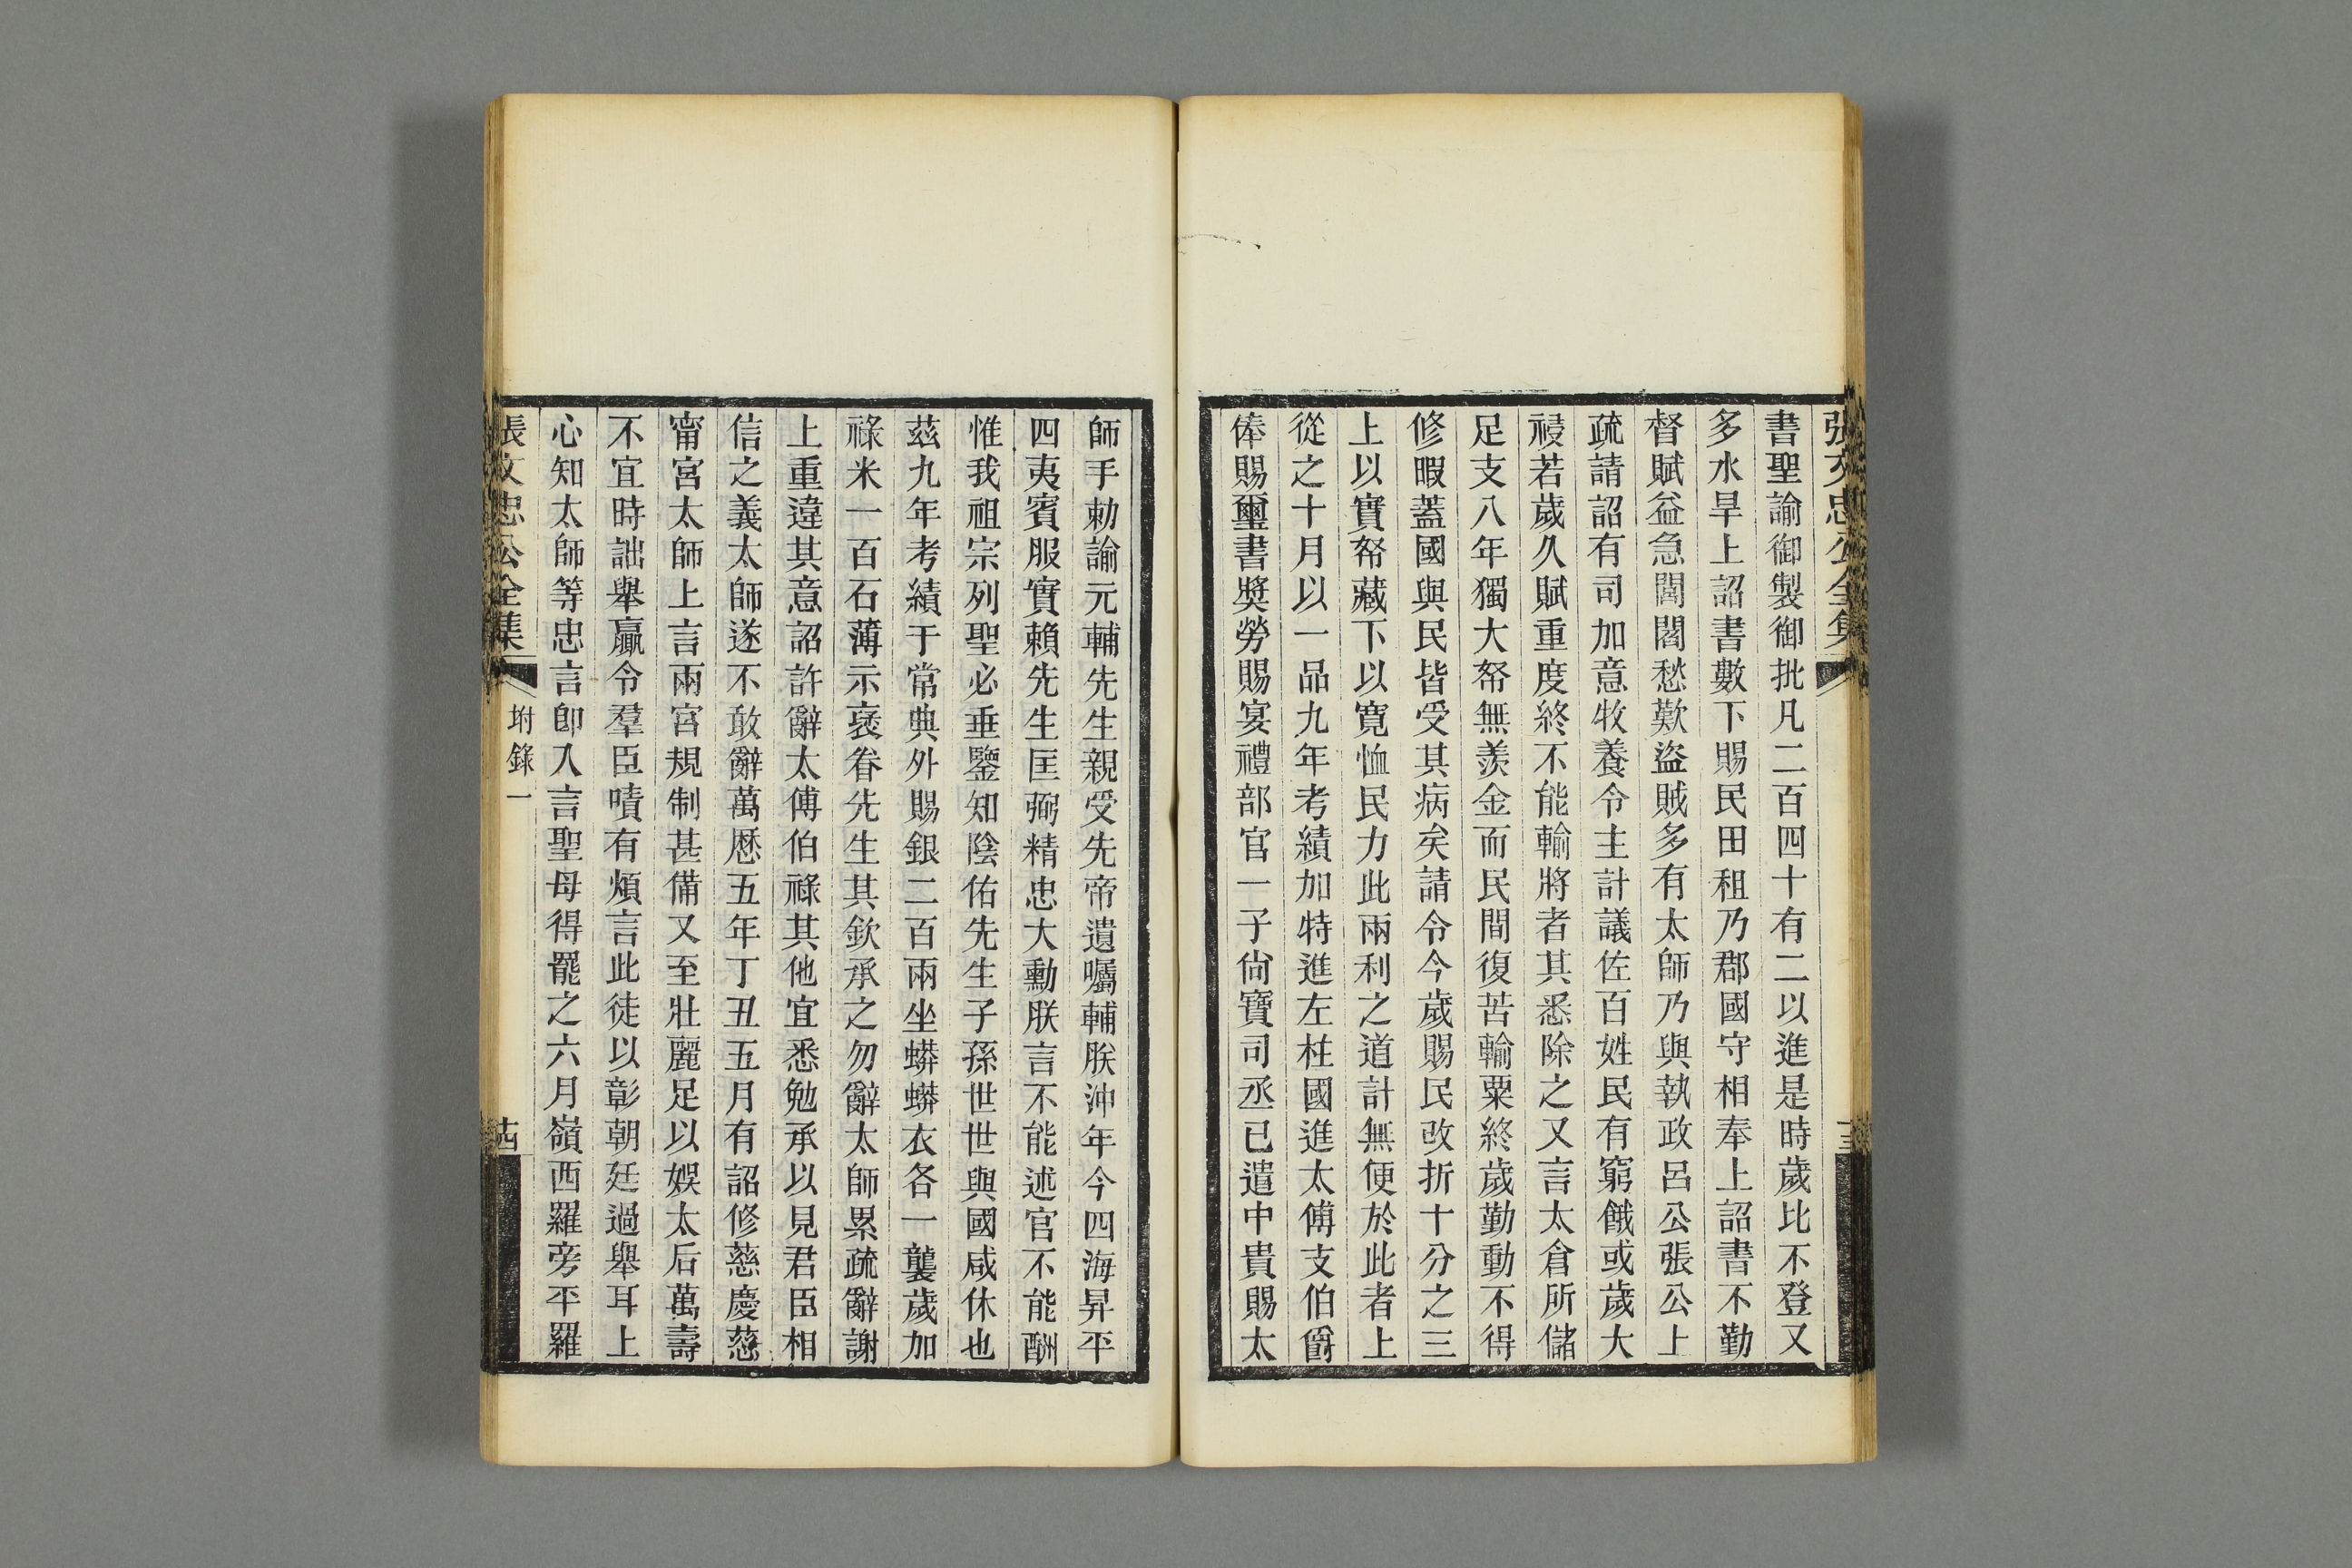 張文忠公全集
書聖諭御製御批凡二百四十有二以進是時歲比不登又
多水旱上詔書數下賜民田租乃郡國守相奉上詔書不勤
督賦益急閭閻愁歎盜賊多有太師乃與執政呂公張公上
疏請詔有司加意牧養令主計議佐百姓民有窮餓或歲大
祲若歲久賦重度終不能輸將者其悉除之又言太倉所儲
足支八年獨大帑無羨金而民間復苦輸粟終歲勤動不得
修暇蓋國與民皆受其病矣請令今歲賜民改折十分之三
上以實帑藏下以寬恤民力此兩利之道計無便於此者上
從之十月以一品九年考績加特進左柱國進太傅支伯爵
俸賜璽書獎勞賜宴禮部官一子尙寶司丞已遣中貴賜太
師手勅諭元輔先生親受先帝遺囑輔朕沖年今四海昇平
四夷賓服實賴先生匡弼精忠大勳朕言不能述官不能酬
惟我祖宗列聖必垂鑒知陰佑先生子孫世世與國咸休也
茲九年考績于常典外賜銀二百兩坐蟒蟒衣各一襲歲加
祿米一百石薄示褒眷先生其欽承之勿辭太師累疏辭謝
上重違其意詔許辭太傅伯祿其他宜悉勉承以見君臣相
信之義太師遂不敢辭萬厯五年丁丑五月有詔修慈慶慈
甯宮太師上言兩宮規制甚備又至壯麗足以娛太后萬壽
不宜時詘舉贏令羣臣嘖有煩言此徒以彰朝廷過舉耳上
心知太師等忠言卽入言聖母得罷之六月嶺西羅旁平羅
張文忠公全集
坿錄一
十四